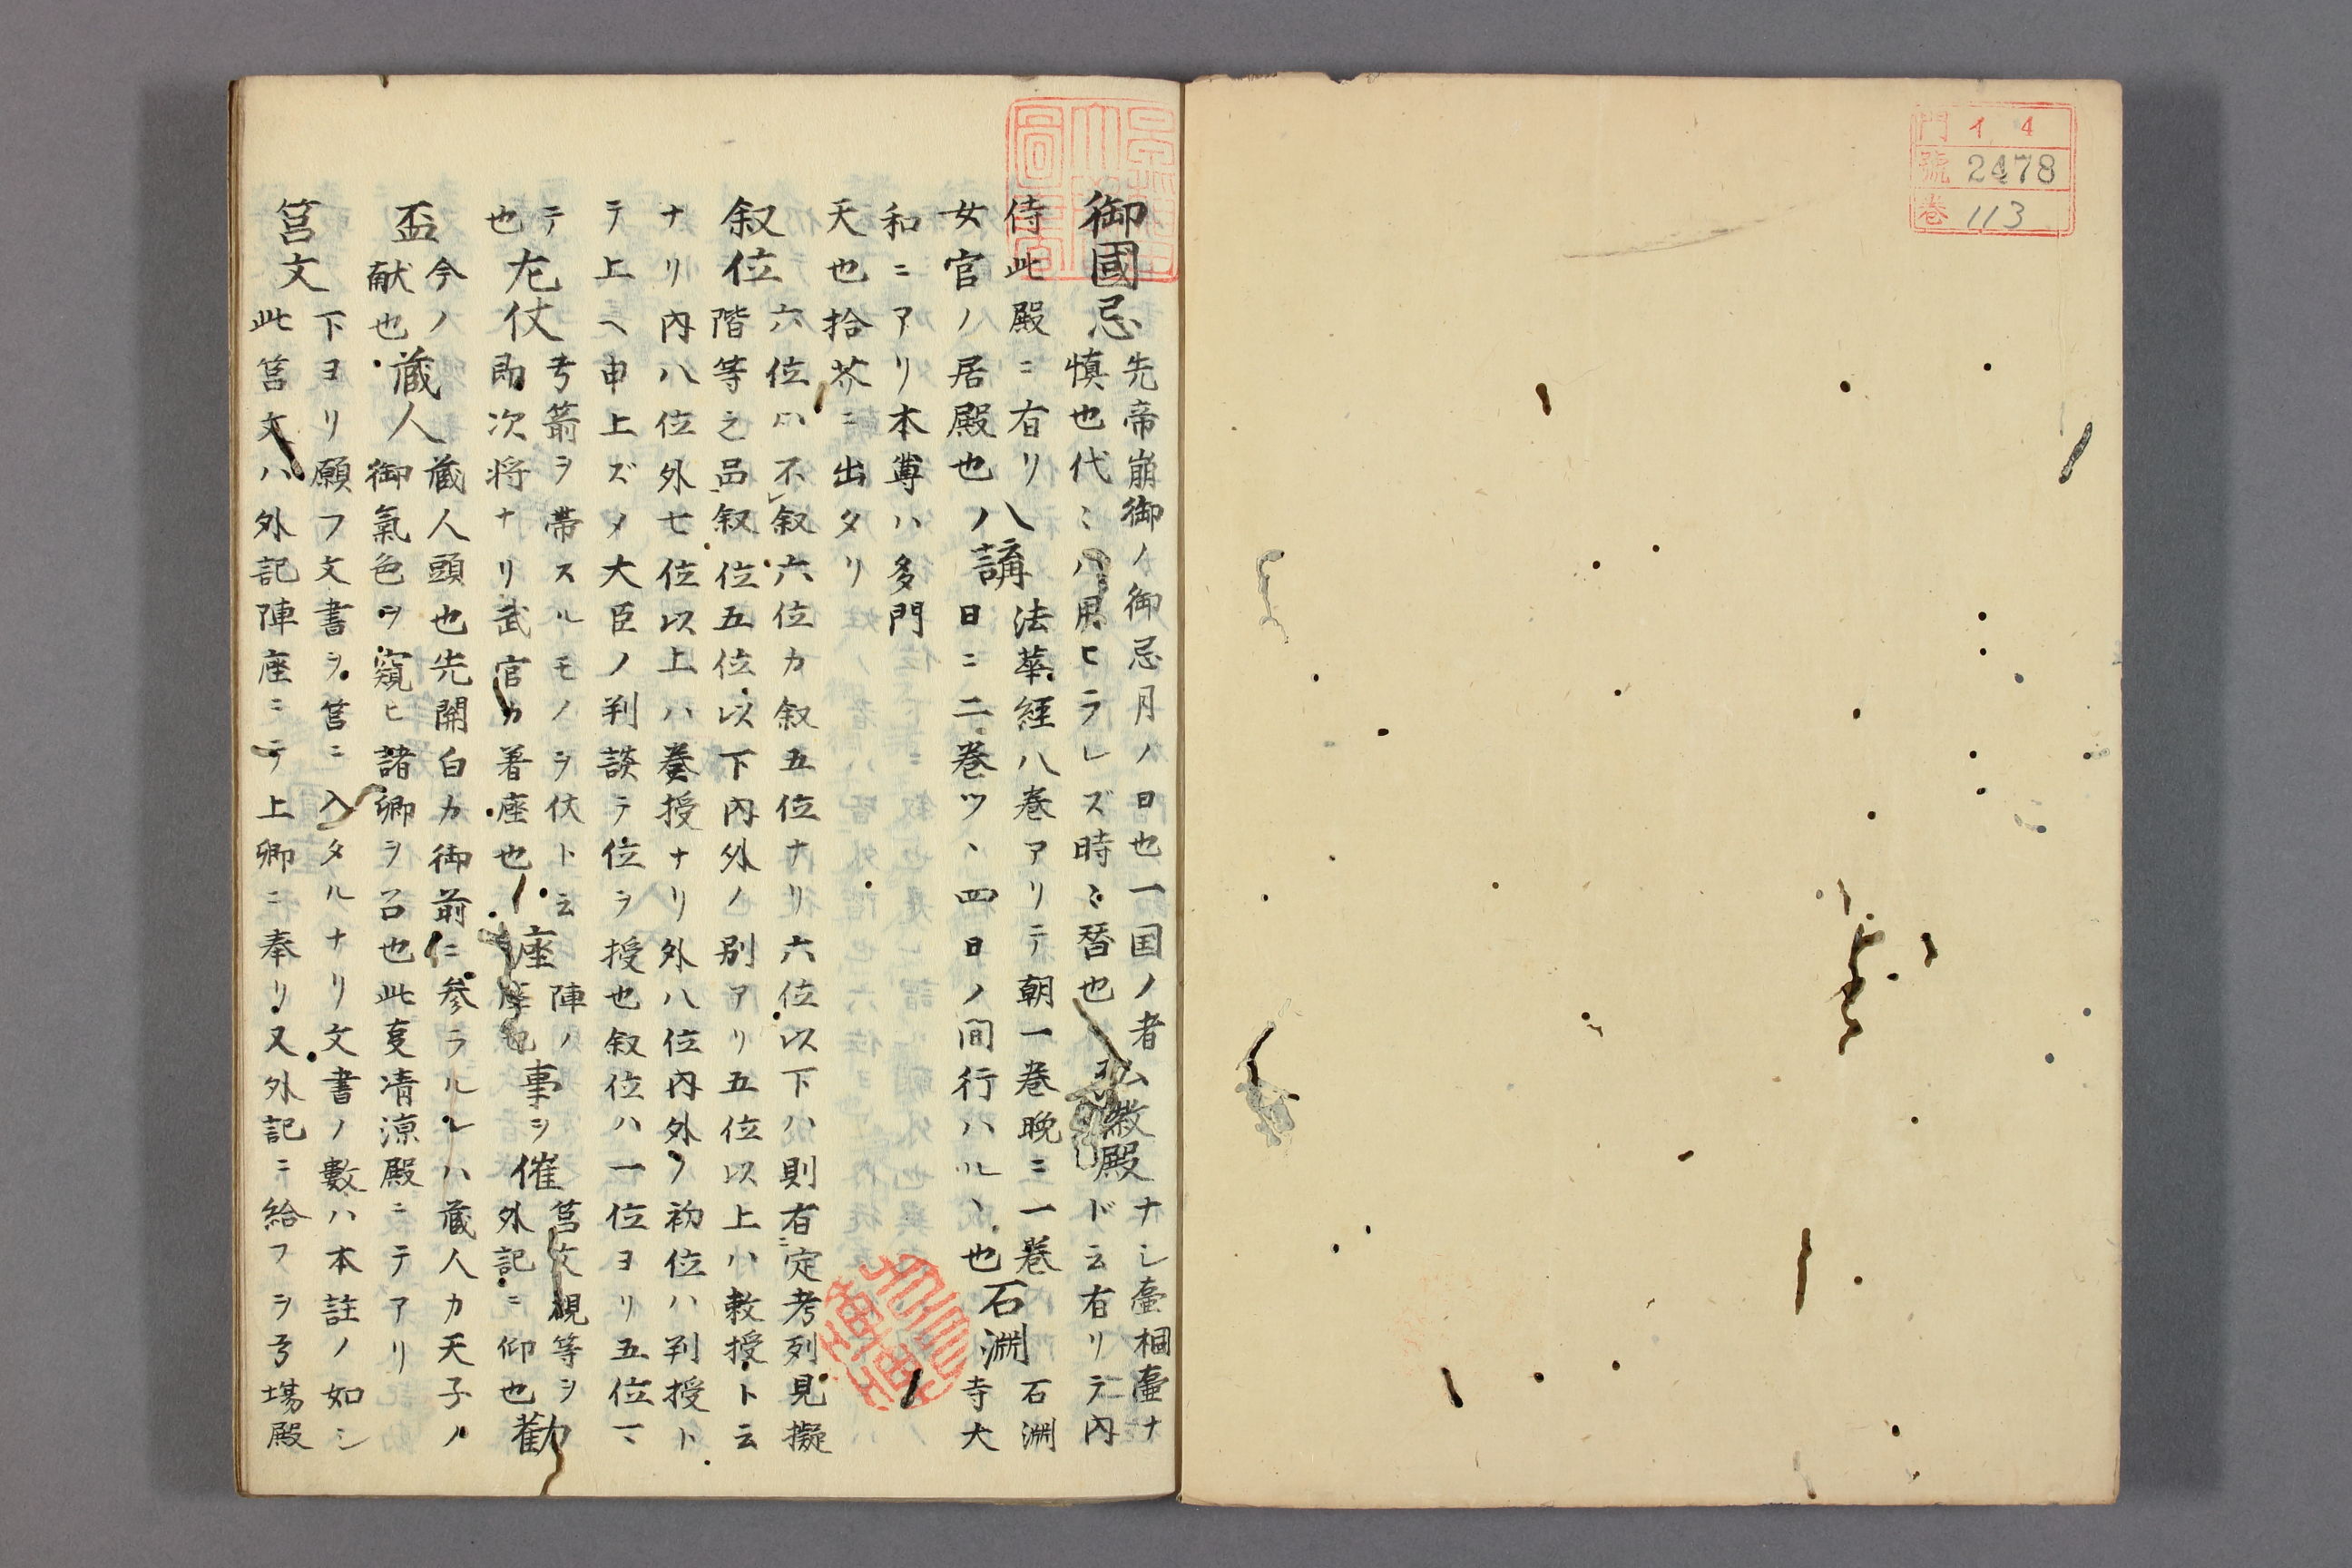 門 イ 4
號 2478
卷 113
御國忌
先帝崩御ノ御忌月ノ日也一国ノ者
慎也代〻ハ用ヒラレズ時〻替也
弘徽殿
ナシ壷梱壷ナ
ド云有リテ内
侍此殿ニ有リ
女官ノ居殿也
八講
法華経八巻アリテ朝一巻晩ニ一巻
日ニ二巻ツヽ四日ノ間行ハルヽ也
石淵
石淵
寺大
和ニアリ本尊ハ多門
天也拾芥ニ出タリ
叙位
六位ハ不叙六位カ叙五位ナリ六位以下ハ則有定考列見擬
階等之品叙位五位以下内外ノ別アリ五位以上ハ敕授ト云
ナリ内八位外七位以上ハ奏授ナリ外八位内外ノ初位ハ判授ト
テ上ヘ申上ズメ大臣ノ判談テ位ヲ授也叙位ハ一位ヨリ五位マ
テ
也
尢仗
考箭ヲ帯スルモノヲ仗ト云
即次将ナリ武官カ着座也
座
陣ノ
座也
事ヲ催
筥文硯等ヲ
外記ニ仰也
勧
盃
今ノ
献也
蔵人
蔵人頭也先関白カ御前仁参ラルレハ蔵人カ天子ノ
御氣色ヲ窺ヒ諸卿ヲ召也此㕝清凉殿ニテアリ
筥文
下ヨリ願フ文書ヲ筥ニ入タルナリ文書ノ數ハ本註ノ如シ
此筥文ハ外記陣座ニテ上卿ニ奉リ又外記ニ給フヲ弓場殿